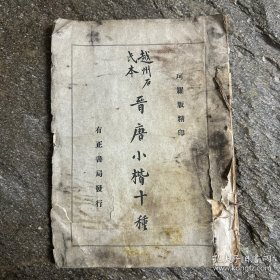 珂羅版精印
越州石氏本
晋唐小楷十種
有正書局發行